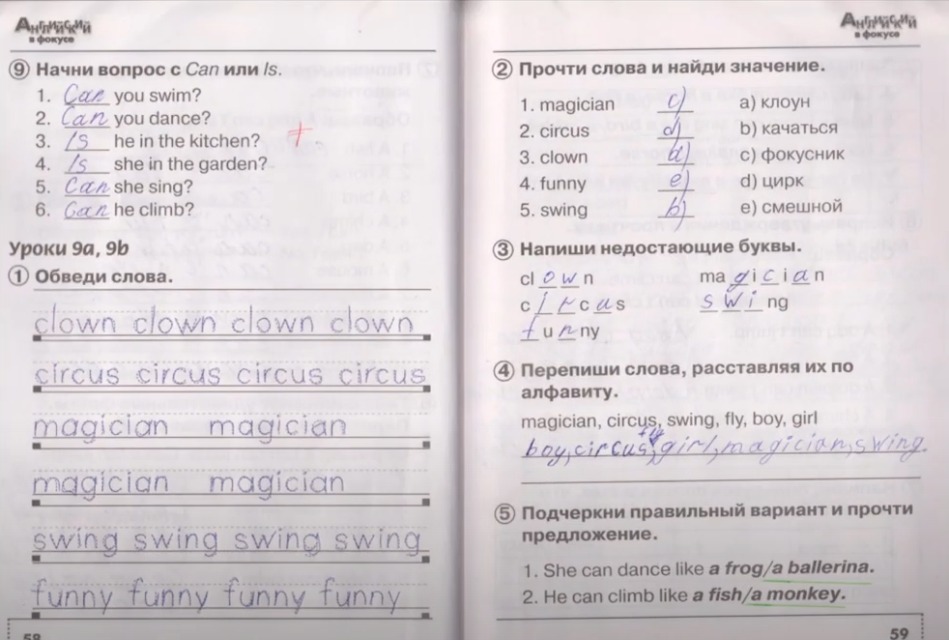 Английский
в фокусе
⑨ Начни вопрос с Can или Is.
1. Can you swim?
2. Can you dance?
3. Is he in the kitchen? +
4. Is she in the garden?
5. Can she sing?
6. Can he climb?
Уроки 9a, 9b
① Обведи слова.
clown clown clown clown
circus circus circus circus
magician magician
magician magician
swing swing swing swing
funny funny funny funny
58
Английский
в фокусе
② Прочти слова и найди значение.
1. magician c) a) клоун
2. circus d) b) качаться
3. clown a) c) фокусник
4. funny e) d) цирк
5. swing b) e) смешной
③ Напиши недостающие буквы.
clown magician
circus swing
funny
④ Перепиши слова, расставляя их по
алфавиту.
magician, circus, swing, fly, boy, girl
fly
boy, circus, girl, magician, swing.
⑤ Подчеркни правильный вариант и прочти
предложение.
1. She can dance like a frog/a ballerina.
2. He can climb like a fish/a monkey.
59